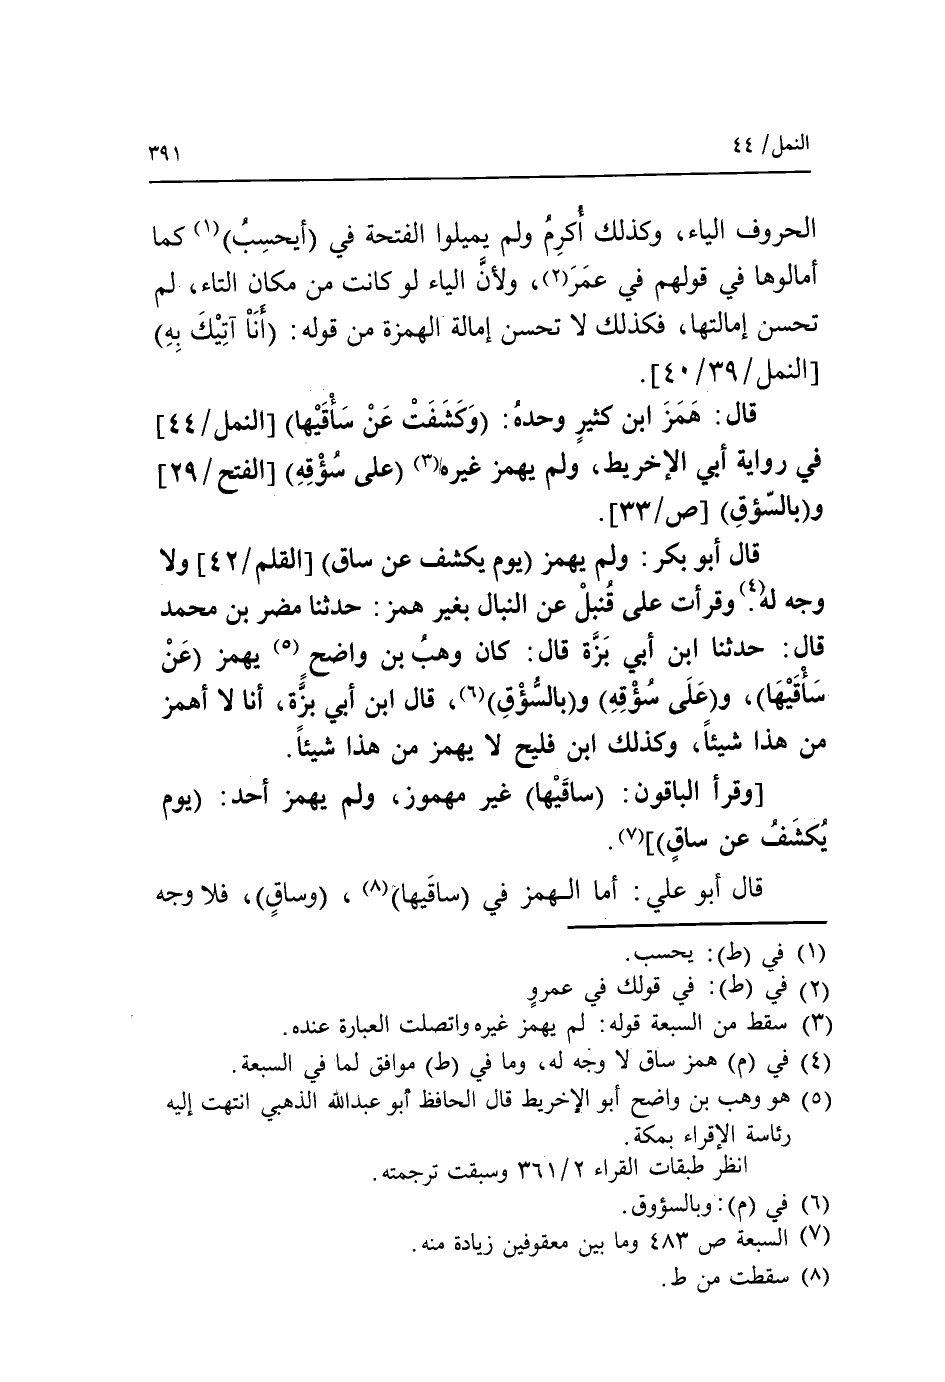 النمل/ ٤٤
٣٩١
الحروف الياء، وكذلك أُكرِمُ ولم يميلوا الفتحة في (أيحسِبُ)(١) كما
أمالوها في قولهم في عمَرَ(٢)، ولأنَّ الياء لو كانت من مكان التاء، لم
تحسن إمالتها، فكذلك لا تحسن إمالة الهمزة من قوله: (أَنَاْ آتِيْكَ بِهِ)
[النمل/ ٣٩/ ٤٠].
قال: هَمَزَ ابن كثيرٍ وحدهُ: (وَكَشَفَتْ عَنْ سَأْقَيْها) [النمل/ ٤٤]
في رواية أبي الإخريط، ولم يهمز غيره(٣) (على سُؤْقِهِ) [الفتح/ ٢٩]
و(بالسّؤقِ) [ص/ ٣٣].
قال أبو بكر: ولم يهمز (يوم يكشف عن ساق) [القلم/ ٤٢] ولا
وجه له(٤). وقرأت على قُنبلْ عن النبال بغير همز: حدثنا مضر بن محمد
قال: حدثنا ابن أبي بَزَّة قال: كان وهبُ بن واضحٍ(٥) يهمز (عَنْ
سَأْقَيْهَا)، و(عَلَى سُؤْقِهِ) و(بالسُّؤْقِ)(٦)، قال ابن أبي بزَّة، أنا لا أهمز
من هذا شيئاً، وكذلك ابن فليح لا يهمز من هذا شيئاً.
[وقرأ الباقون: (ساقَيْها) غير مهموز، ولم يهمز أحد: (يوم
يُكشَفُ عن ساقٍ)](٧).
قال أبو علي: أما الهمز في (ساقَيها)(٨)، (وساقٍ)، فلا وجه
(١) في (ط): يحسب.
(٢) في (ط): في قولك في عمروٍ
(٣) سقط من السبعة قوله: لم يهمز غيره واتصلت العبارة عنده.
(٤) في (م) همز ساق لا وجه له، وما في (ط) موافق لما في السبعة.
(٥) هو وهب بن واضح أبو الإخريط قال الحافظ أبو عبدالله الذهبي انتهت إليه
رئاسة الإقراء بمكة.
انظر طبقات القراء ٢/ ٣٦١ وسبقت ترجمته.
(٦) في (م): وبالسؤوق.
(٧) السبعة ص ٤٨٣ وما بين معقوفين زيادة منه.
(٨) سقطت من ط.